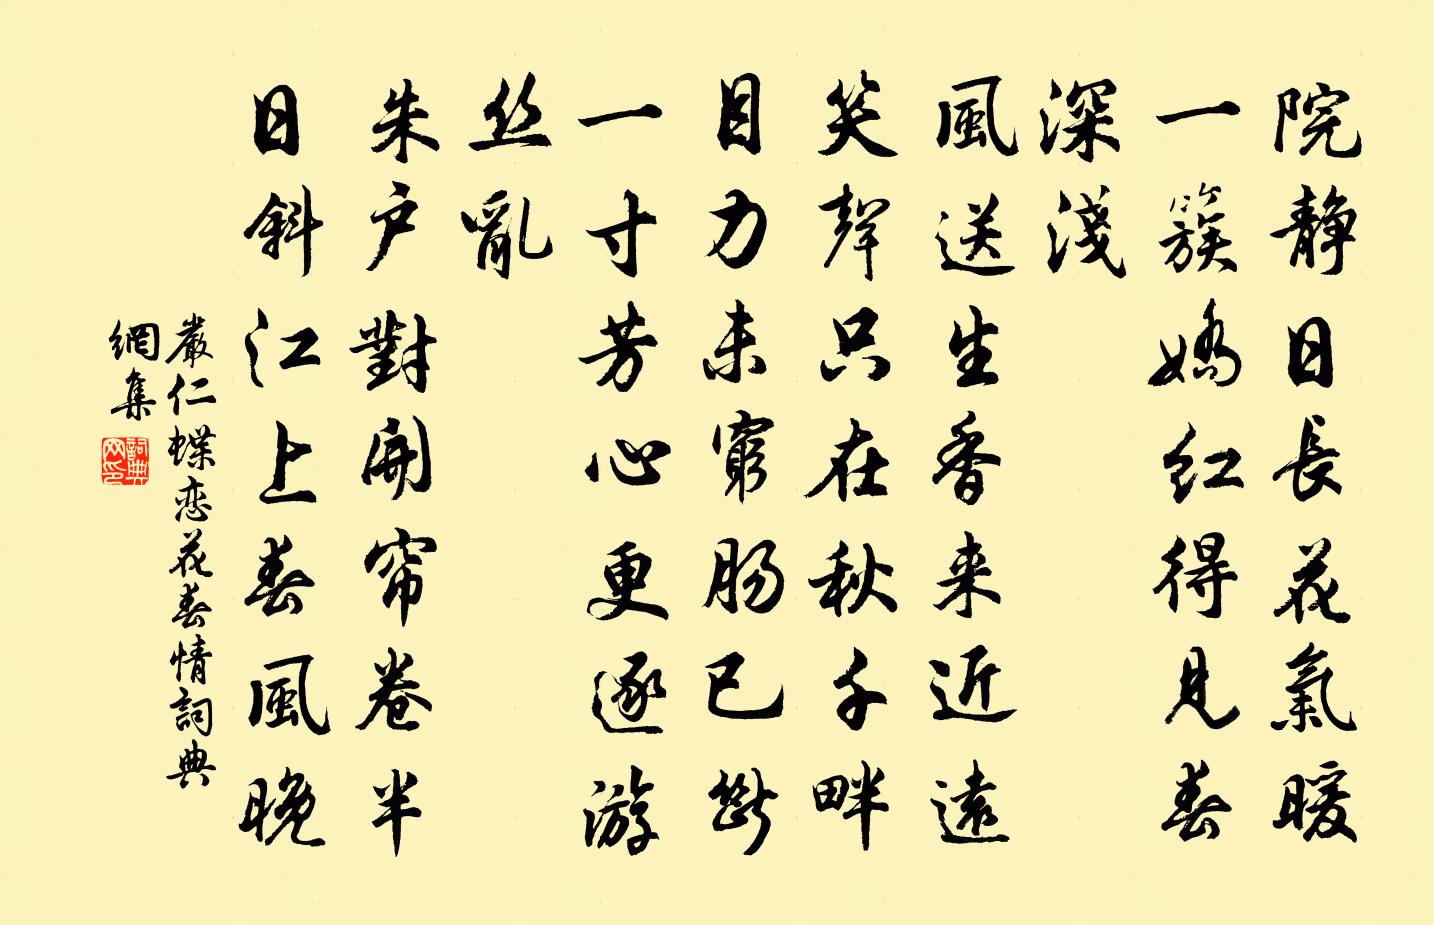 院静日長花氣暖
一簇嬌红得見春
深淺
風送生香来近遠
笑聲只在秋千畔
目力未窮肠已斷
一寸芳心更逐游
丝亂
朱户對開帘卷半
日斜江上春風晚
嚴仁蝶恋花春情詞典
網集
詞典
网印